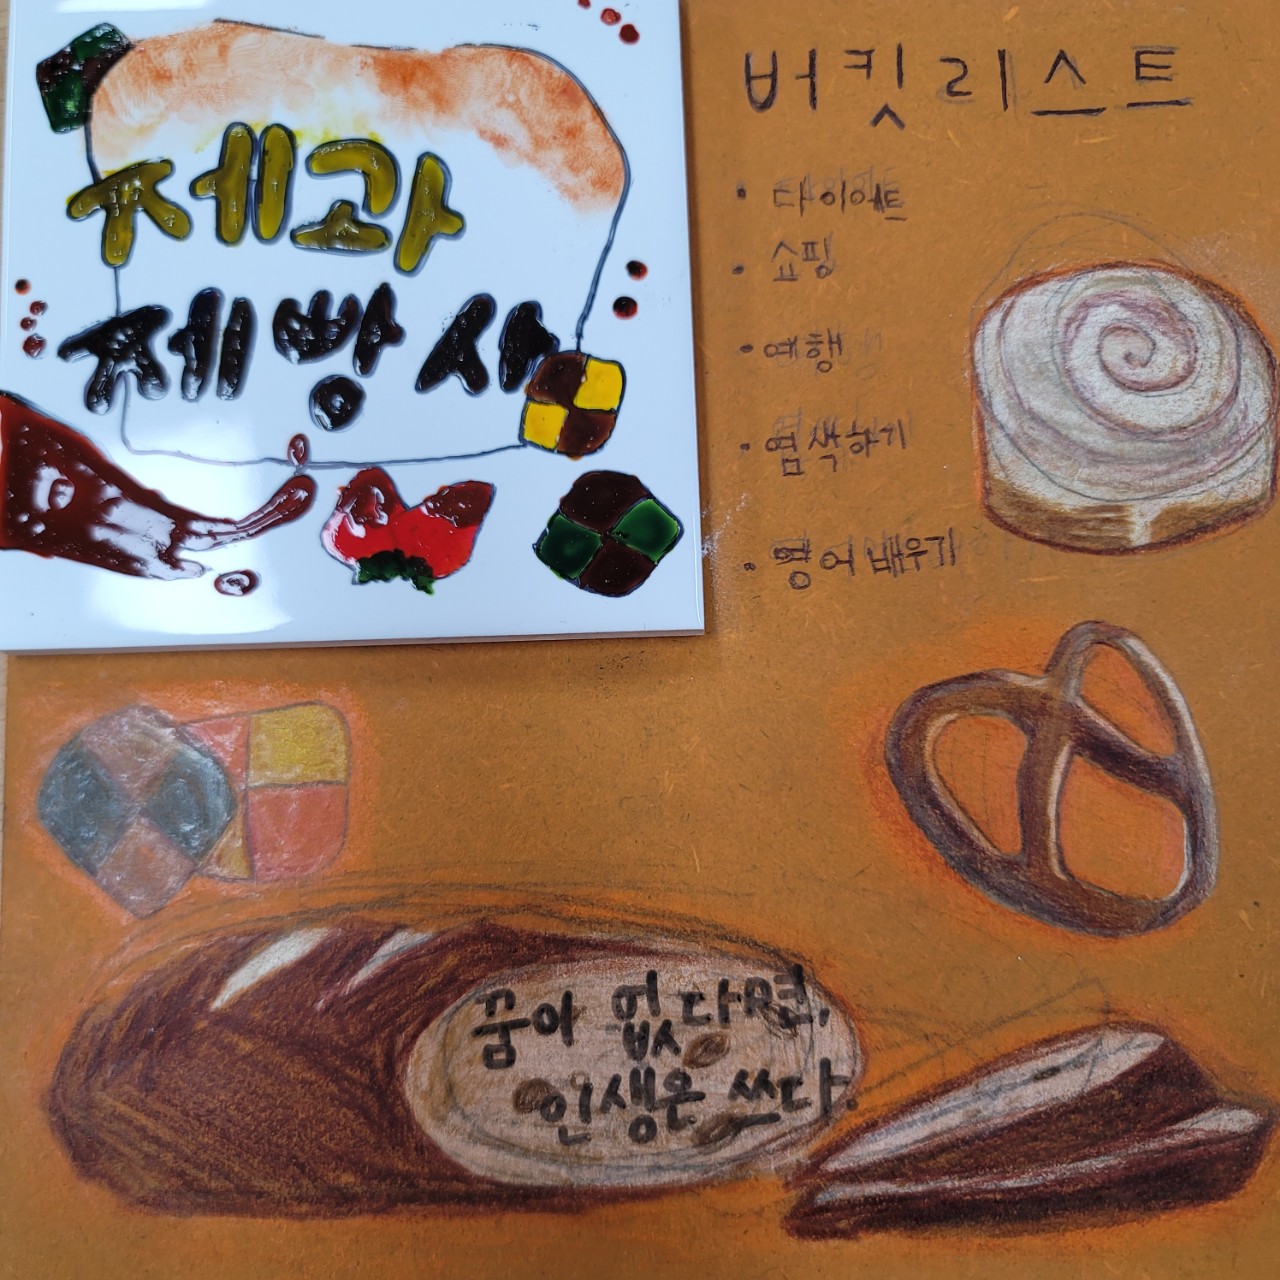 제과
제빵사
버킷리스트
• 다이어트
• 쇼핑
• 여행
• 염색하기
• 영어 배우기
꿈이 없다면,
인생은 쓰다.